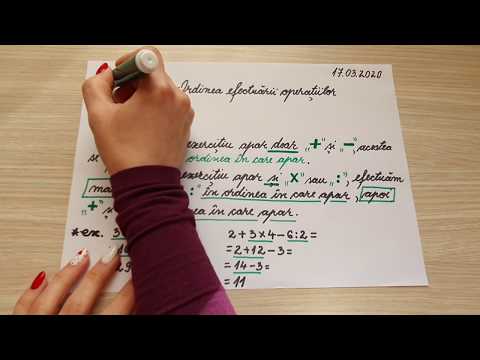 17.03.2020
Ordinea efectuării operațiilor
exercițiu apar doar „+" și „–", acestea
ordinea în care apar.
exercițiu apar și „×" sau „:", efectuăm
„:" în ordinea în care apar, apoi
„+"
în care apar.
* ex.
2+3×4–6:2=
=2+12–3=
=14–3=
=11